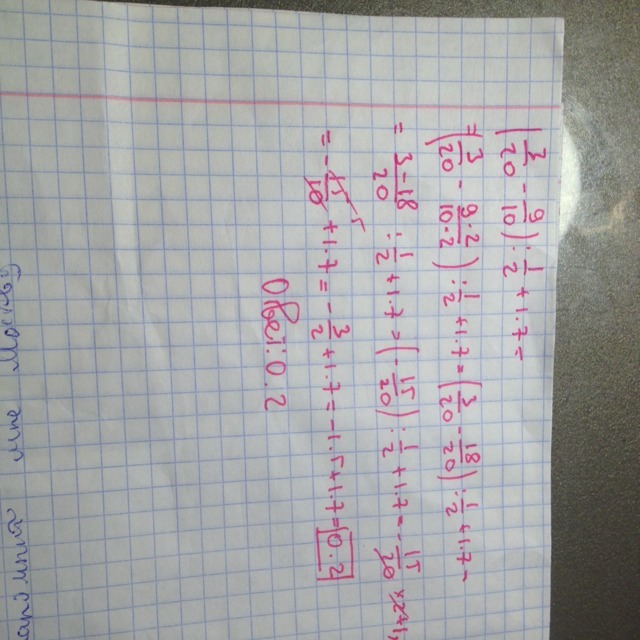 (3/20 - 9/10) : 1/2 + 1.7 =
= (3/20 - 9·2/10·2) : 1/2 + 1.7 = (3/20 - 18/20) : 1/2 + 1.7 =
= 3-18/20 : 1/2 + 1.7 = (-15/20) : 1/2 + 1.7 = -15/20 ×2+1,
= -15/10 + 1.7 = -3/2 + 1.7 = -1.5+1.7=0.2
Ответ: 0.2
мне Москвы